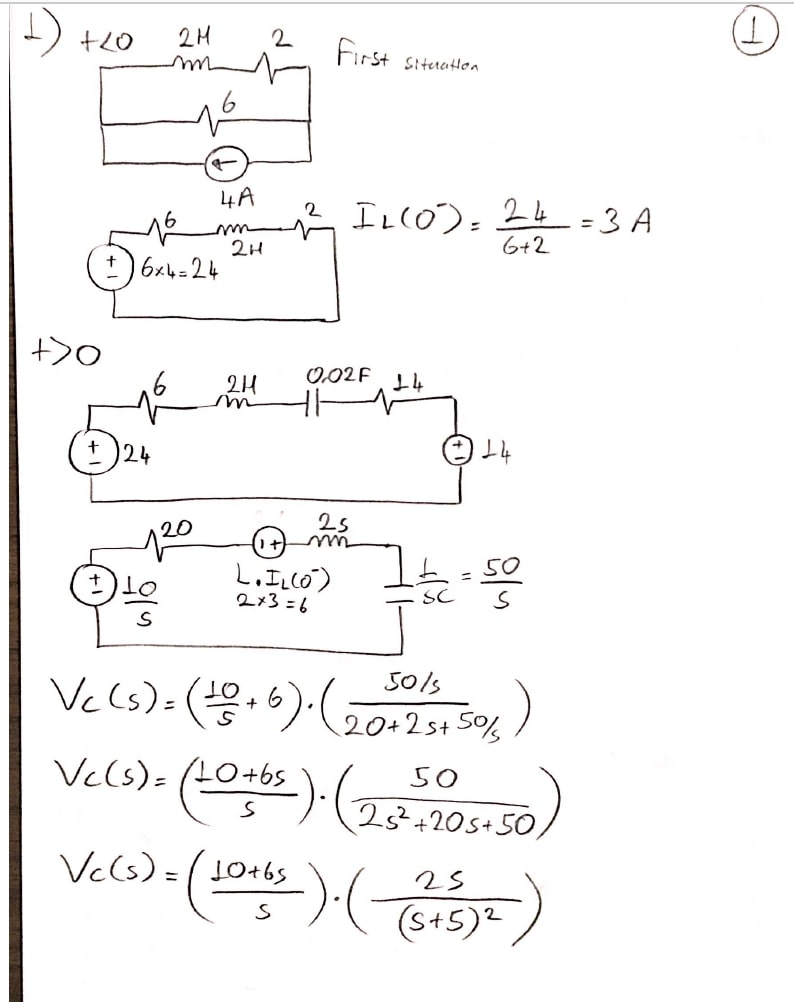 1) t<0 2H 2 First situation 1
6
4A
6 2H 2 IL(0⁻) = 24/(6+2) = 3 A
+ - 6×4=24
t>0
6 2H 0.02F 14
+ - 24 + - 14
20 - + 2s
+ - 10/s L.IL(0⁻) 1/sC = 50/s
2×3=6
Vc(s) = (10/s + 6).((50/s)/(20+2s+50/s))
Vc(s) = ((10+6s)/s).(50/(2s²+20s+50))
Vc(s) = ((10+6s)/s).(25/(s+5)²)